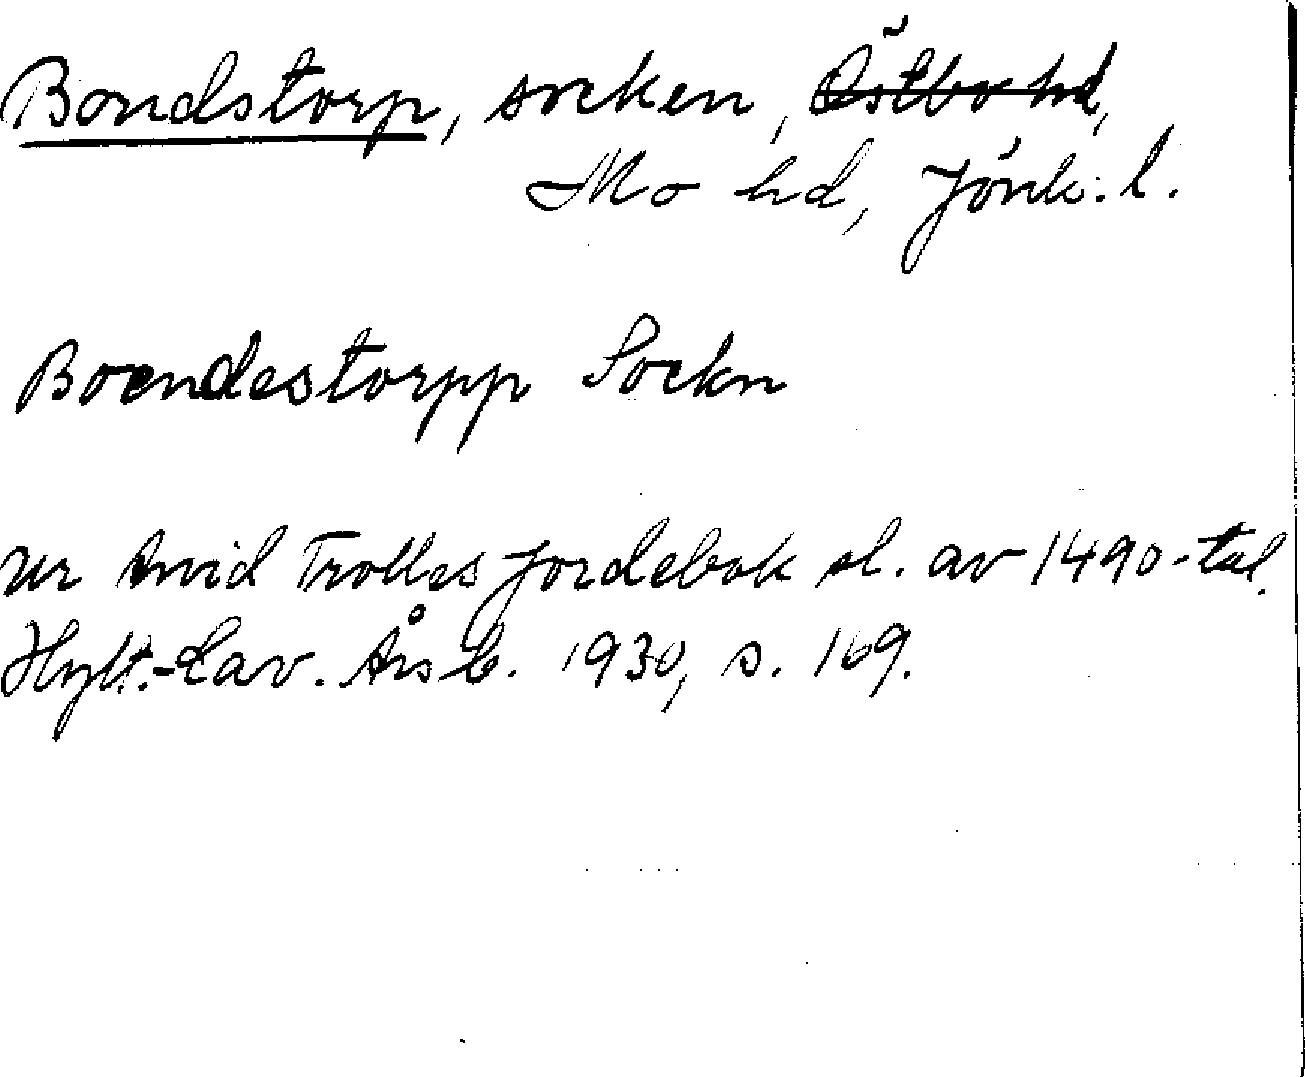 Bondstorp, socken, Östbo hd,
Mo hd, Jönk. l.
Boendestorpp Sockn
Ur Arvid Trolles jordebok sl. av 1490-tal.
Hylt.-Cav. Årsb. 1930, s. 169.